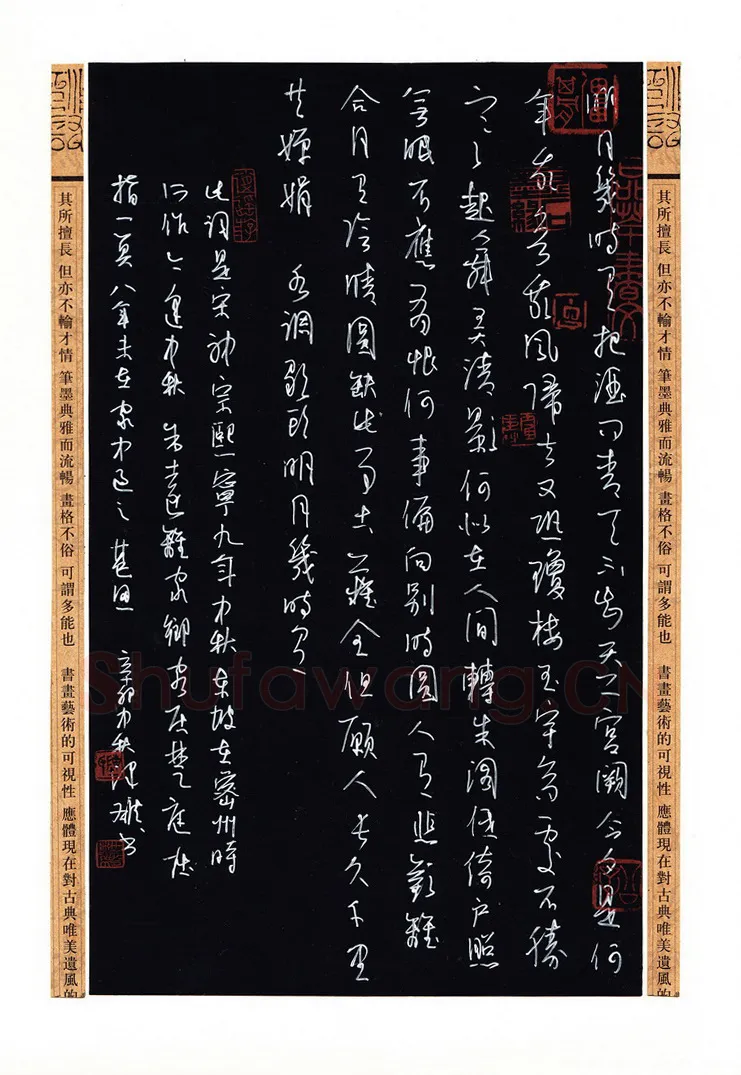 其所擅長 但亦不輸才情 筆墨典雅而流暢 畫格不俗 可謂多能也 書畫藝術的可視性 應體現在對古典唯美遺風的
明月幾時有把酒問青天不知天上宮闕今夕是何
年我欲乘風歸去又恐瓊樓玉宇高處不勝
寒起舞弄清影何似在人間轉朱閣低綺戶照
無眠不應有恨何事偏向別時圓人有悲歡離
合月有陰晴圓缺此事古難全但願人長久千里
共嬋娟 水調歌頭明月幾時有
此詞是宋神宗熙寧九年中秋東坡在密州時
所作今逢中秋吾遠離家鄉客居楚庭屈
指一算八年未在家中過之甚思 辛卯中秋 書
其所擅長 但亦不輸才情 筆墨典雅而流暢 畫格不俗 可謂多能也 書畫藝術的可視性 應體現在對古典唯美遺風的
Shufawang.CN